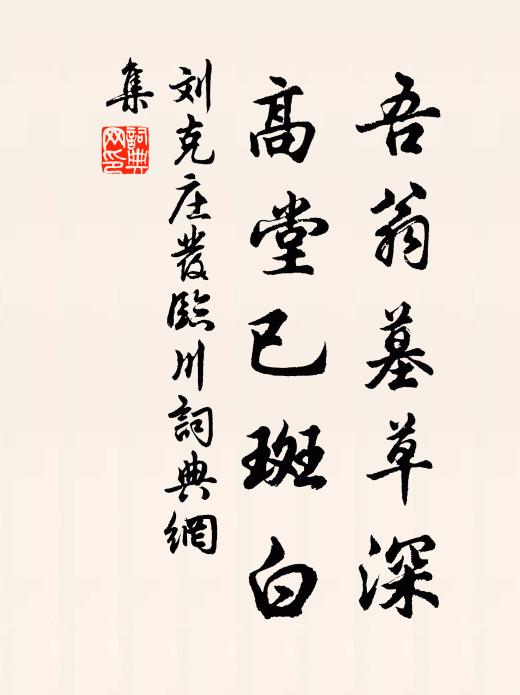 吾翁墓草深
高堂已斑白
刘克庄發臨川詞典網
集
詞典網印